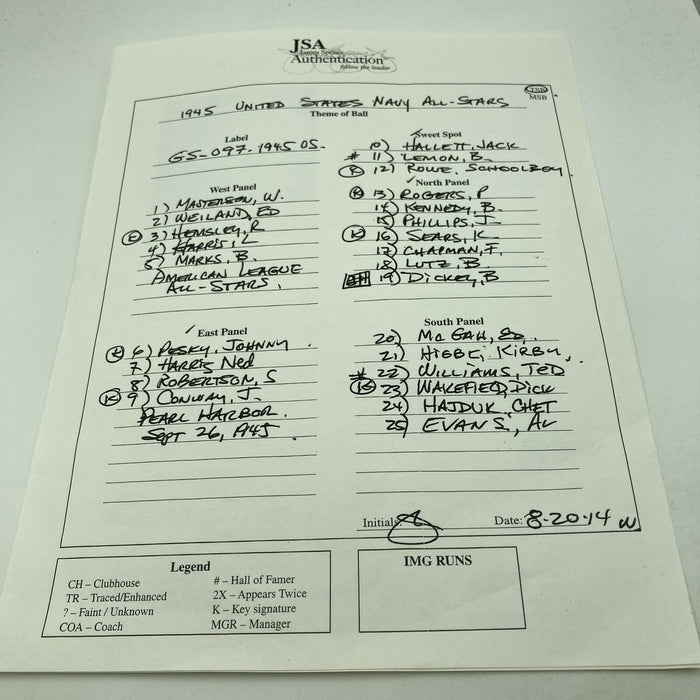 JSA
James Spence
Authentication
follow the leader
MSB
1945 UNITED STATES NAVY ALL-STARS
Theme of Ball
Label
GS-097-1945 OS-
West Panel
1) MASTERSON, W.
2) WEILAND, ED
K 3) HEMSLEY, R
4) HARRIS, L
5) MARKS, B.
AMERICAN LEAGUE
ALL-STARS.
✓ East Panel
K 6) PESKY, JOHNNY
7) HARRIS NED
8) ROBERTSON, S
K 9) CONWAY, J.
PEARL HARBOR.
SEPT 26, 1945
✓ Sweet Spot
10) HALLETT, JACK
# 11) LEMON, B.
K 12) ROWE, SCHOOLBOY
✓ North Panel
K 13) ROGERS, P
14) KENNEDY, B.
15) PHILLIPS, J.
K 16) SEARS, K.
17) CHAPMAN, F.
18) LUTZ, B
19) DICKEY, B
South Panel
20) MCGAH, ED.
21) HIGBE, KIRBY,
# 22) WILLIAMS, TED
K 23) WAKEFIELD, DICK
24) HAJDUK, CHET
25) EVANS, AL
Initials
Date: 8-20-14
Legend
CH – Clubhouse
TR – Traced/Enhanced
? – Faint / Unknown
COA – Coach
# – Hall of Famer
2X – Appears Twice
K – Key signature
MGR – Manager
IMG RUNS